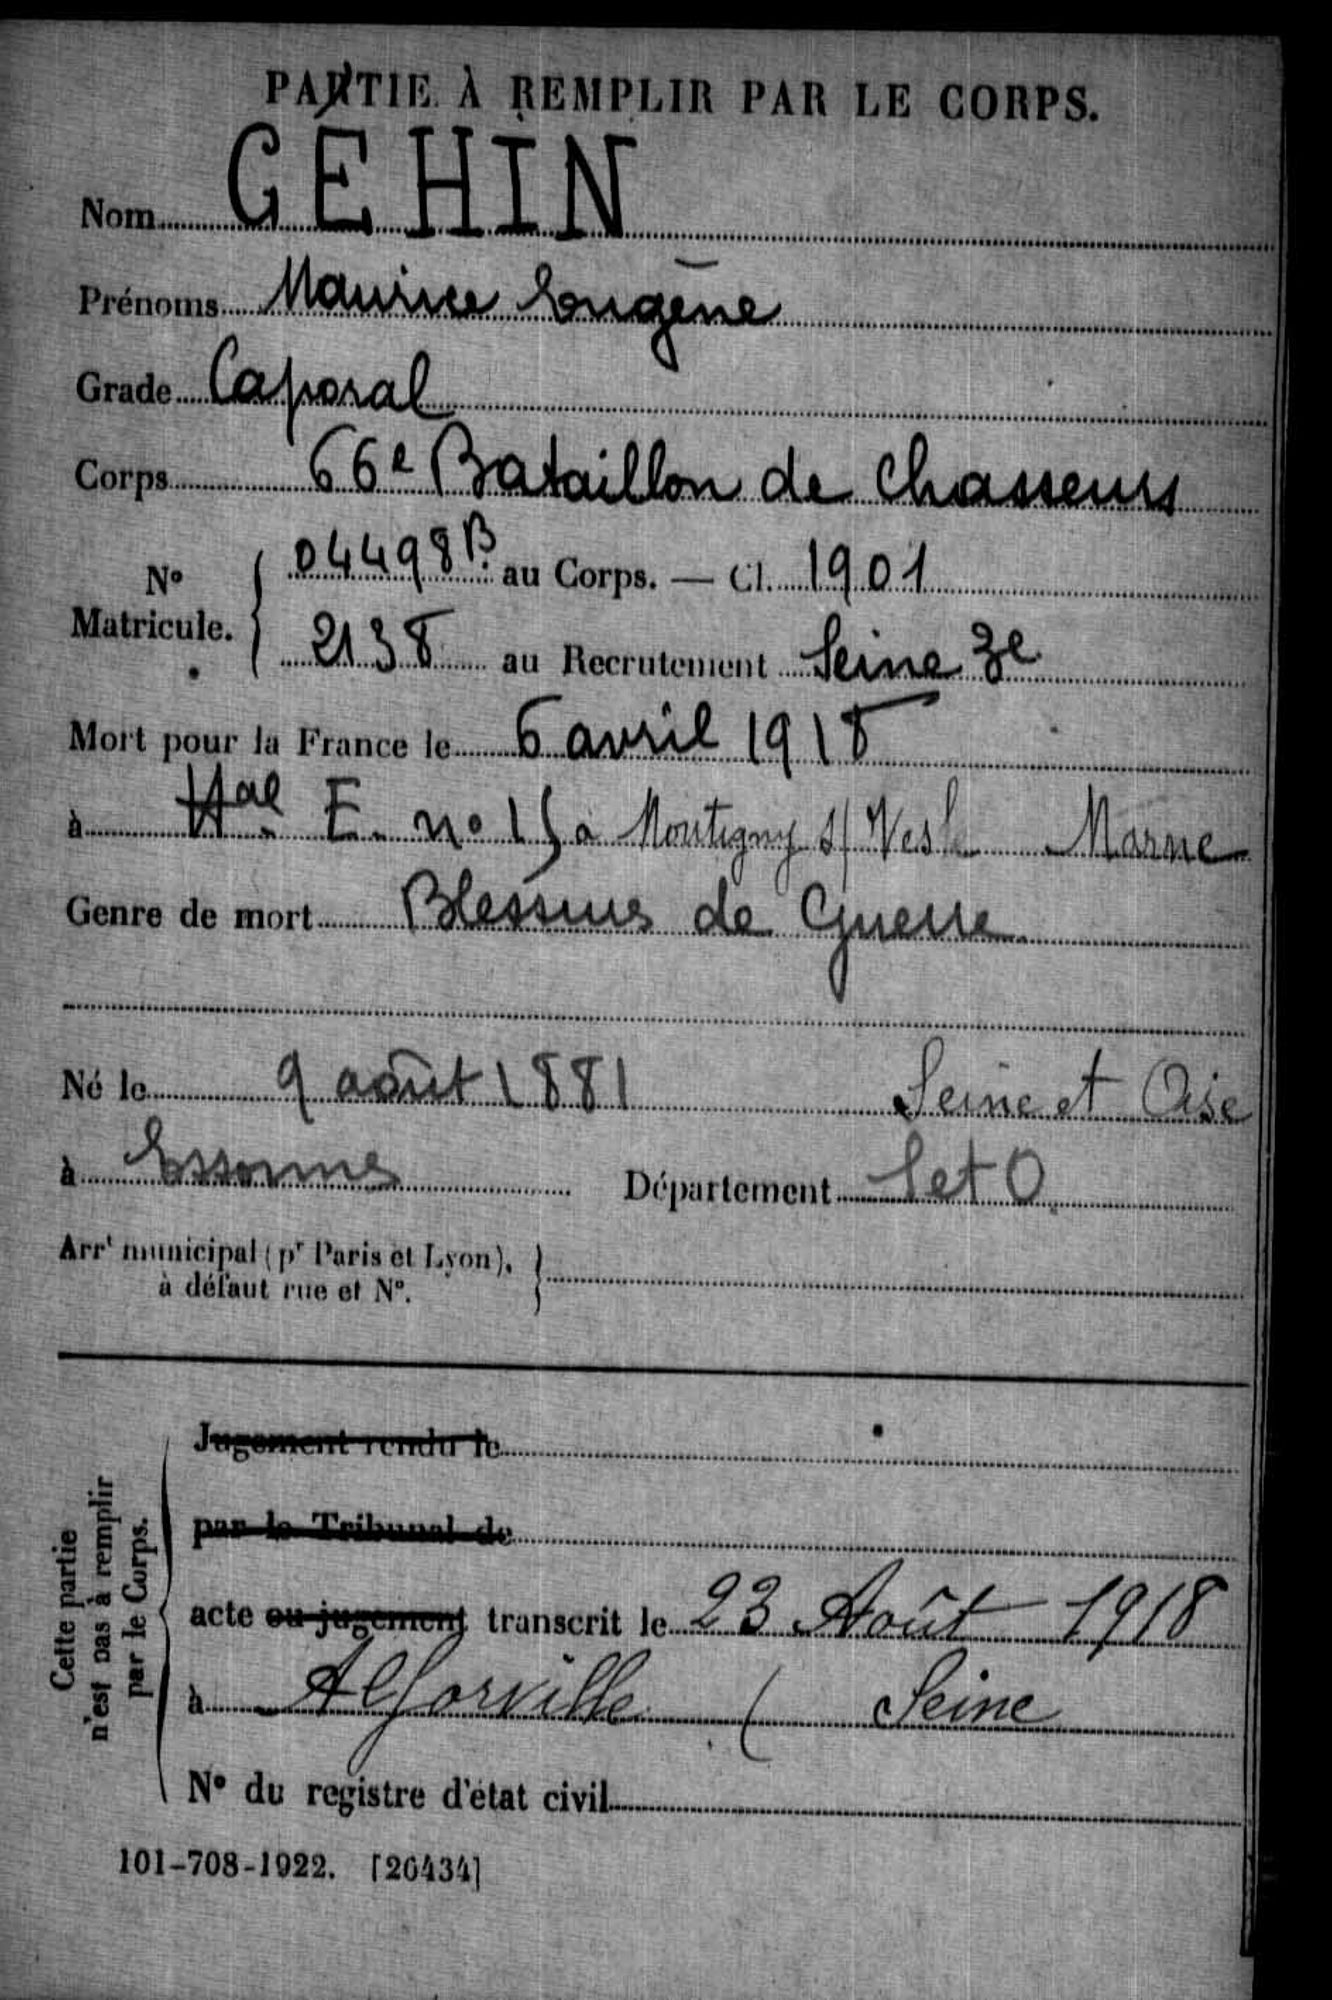 PARTIE À REMPLIR PAR LE CORPS.
Nom GÉHIN
Prénoms Maurice Eugène
Grade Caporal
Corps 66e Bataillon de Chasseurs
No Matricule. { 04498 B. au Corps. — Cl. 1901
2138 au Recrutement Seine 3e
Mort pour la France le 6 avril 1918
à Hal E. no 15 à Montigny s/ Vesle Marne
Genre de mort Blessures de Guerre
Né le 9 août 1881 Seine et Oise
à Essonnes Département S et O.
Arrt municipal (pr Paris et Lyon), }
à défaut rue et No.
Cette partie n'est pas à remplir par le Corps.
Jugement rendu le
par le Tribunal de
acte ou jugement transcrit le 23 Août 1918
à Alforville ( Seine
No du registre d'état civil
101-708-1922. [26434]